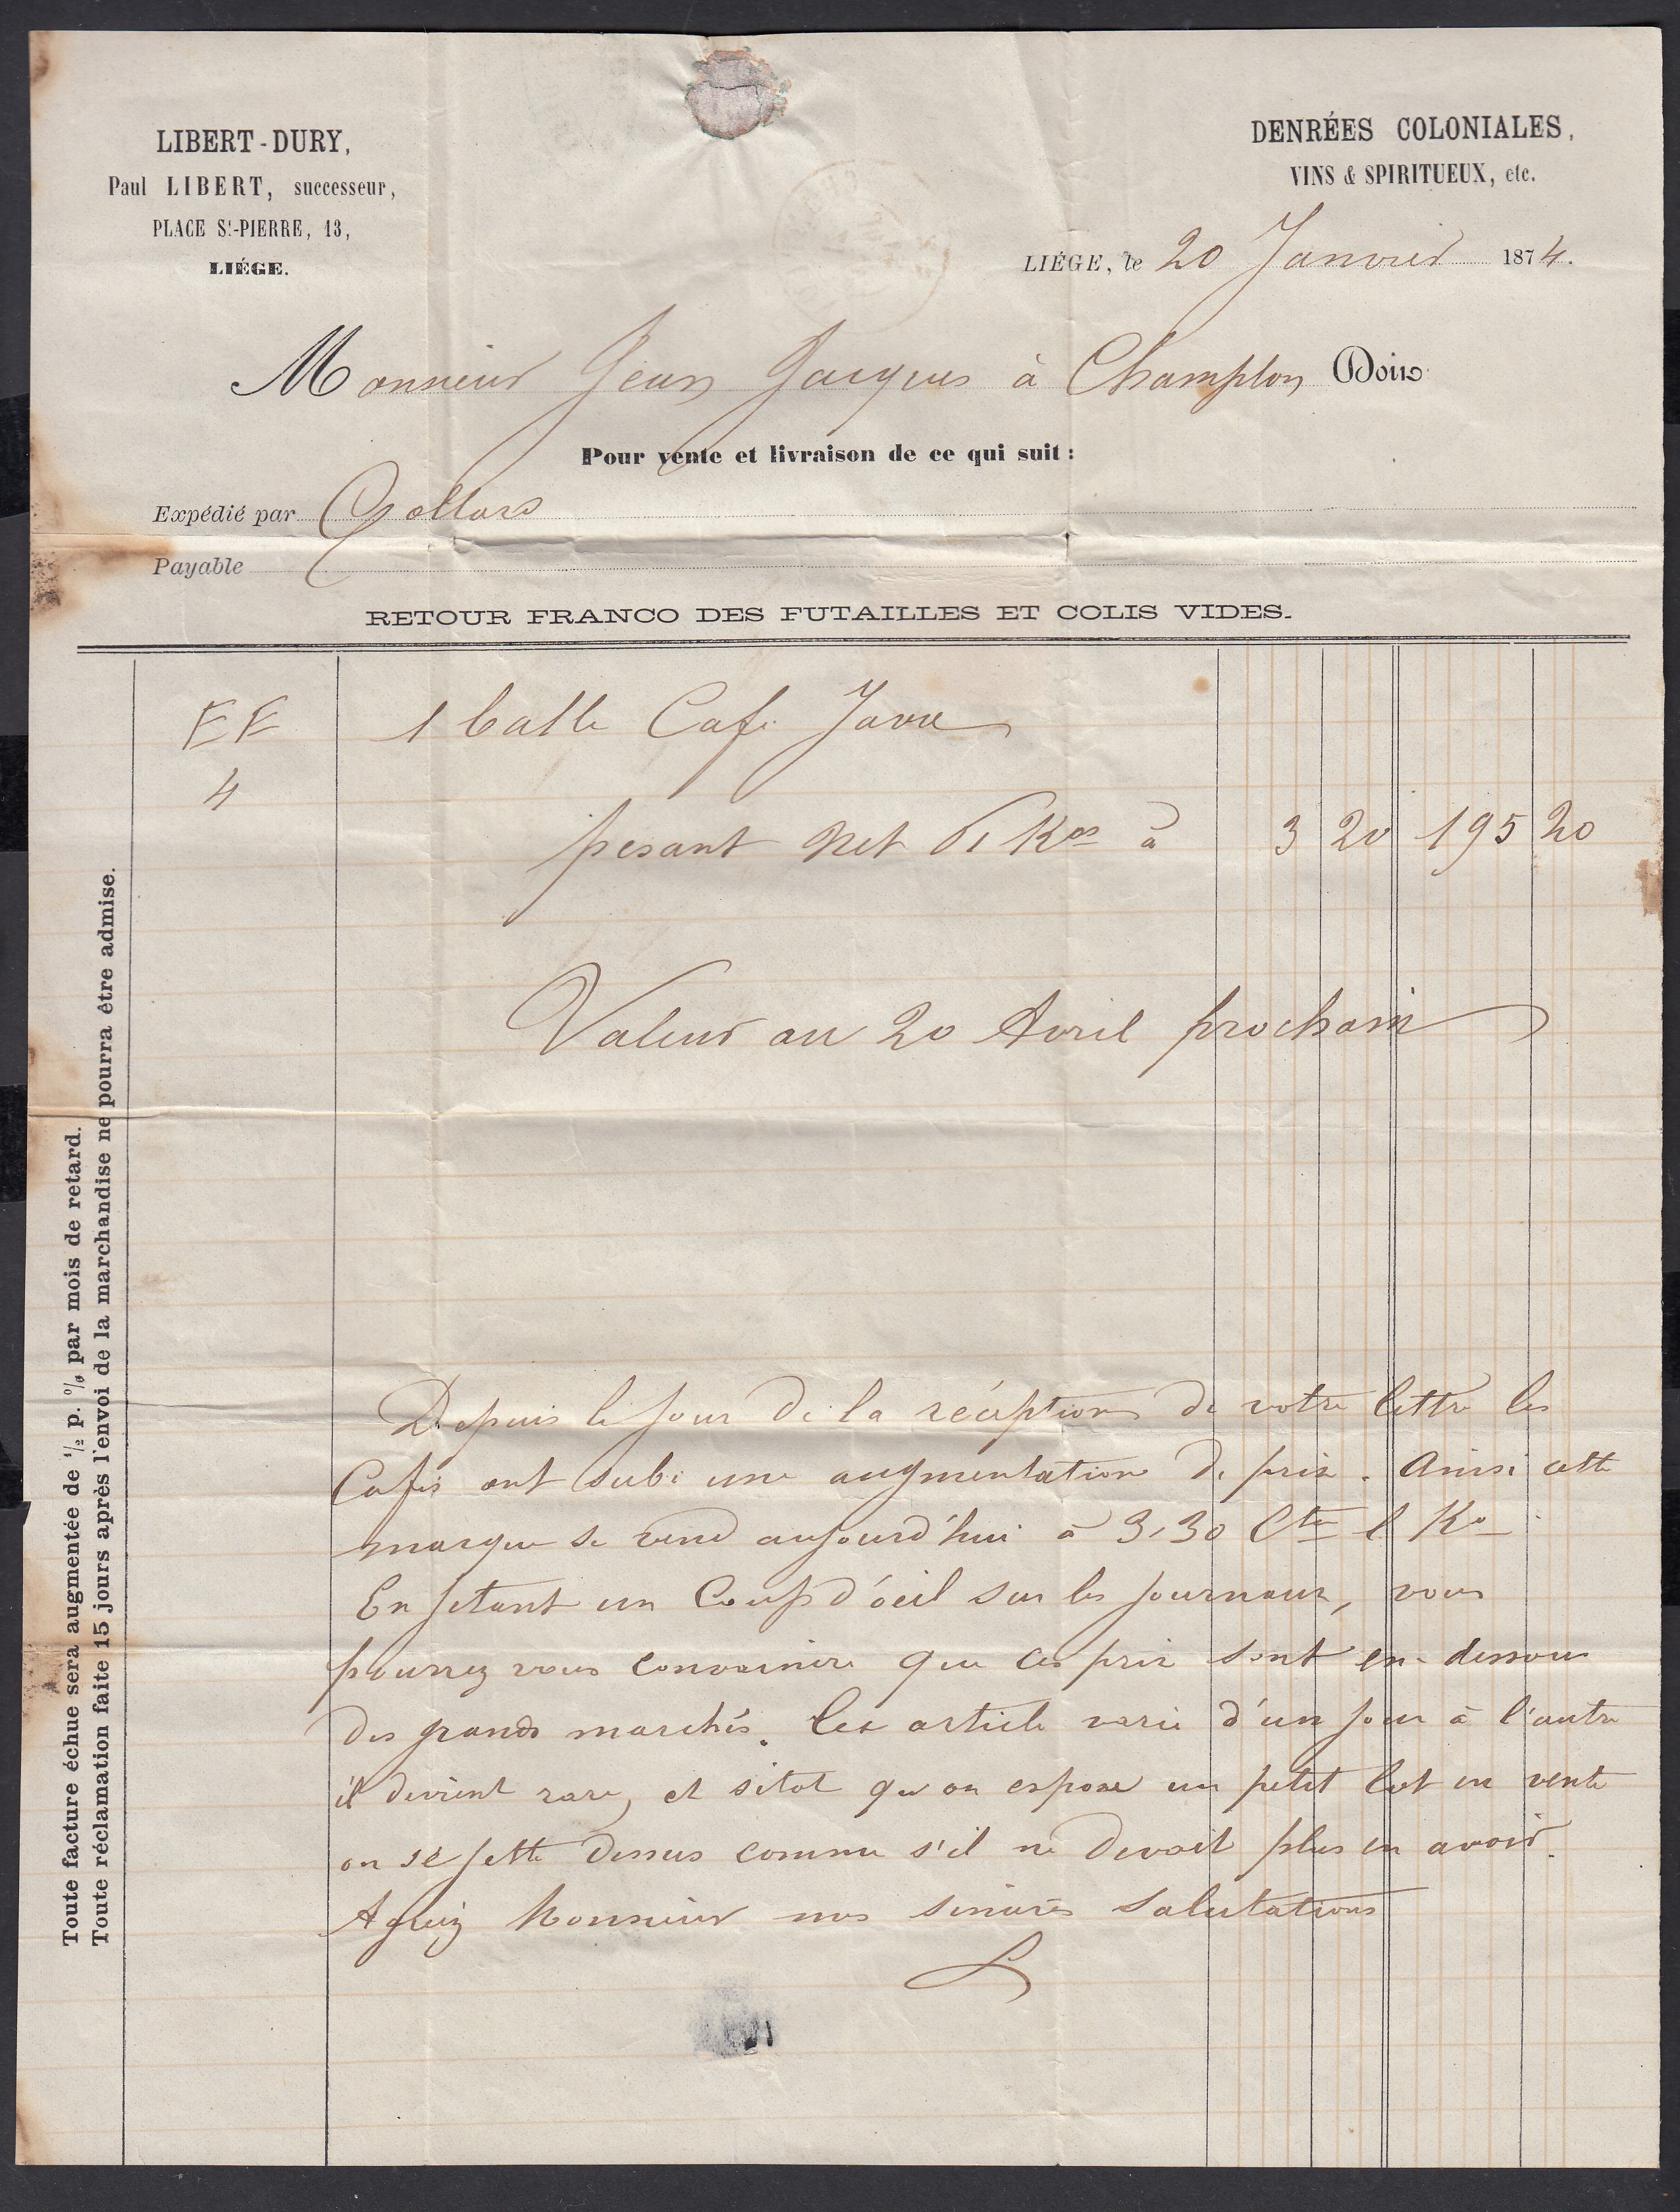 LIBERT-DURY,
Paul LIBERT, successeur,
PLACE St-PIERRE, 13,
LIÉGE.
DENRÉES COLONIALES,
VINS & SPIRITUEUX, etc.
LIÉGE, le 20 Janvier 1874.
Monsieur Jean Jacques à Champlon Doit
Pour vente et livraison de ce qui suit :
Expédié par Collard
Payable
RETOUR FRANCO DES FUTAILLES ET COLIS VIDES.
EE 1 balle Café Java
4
pesant net 61 Kos à 3 20 195 20
Valeur au 20 Avril prochain
Depuis le jour de la réception de votre lettre les
Cafés ont subi une augmentation de prix. Ainsi cette
marque se vend aujourd'hui à 3,30 Cte l Ko
En jetant un Coup d'oeil sur les journaux, vous
pourrez vous convaincre que ces prix sont en-dessous
des grands marchés. Cet article varie d'un jour à l'autre
il devient rare, et sitot qu'on expose un petit lot en vente
on se jette dessus comme s'il ne devait plus en avoir.
Agréez Monsieur nos sincères salutations
L
Toute facture échue sera augmentée de 1/2 p. % par mois de retard.
Toute réclamation faite 15 jours après l'envoi de la marchandise ne pourra être admise.